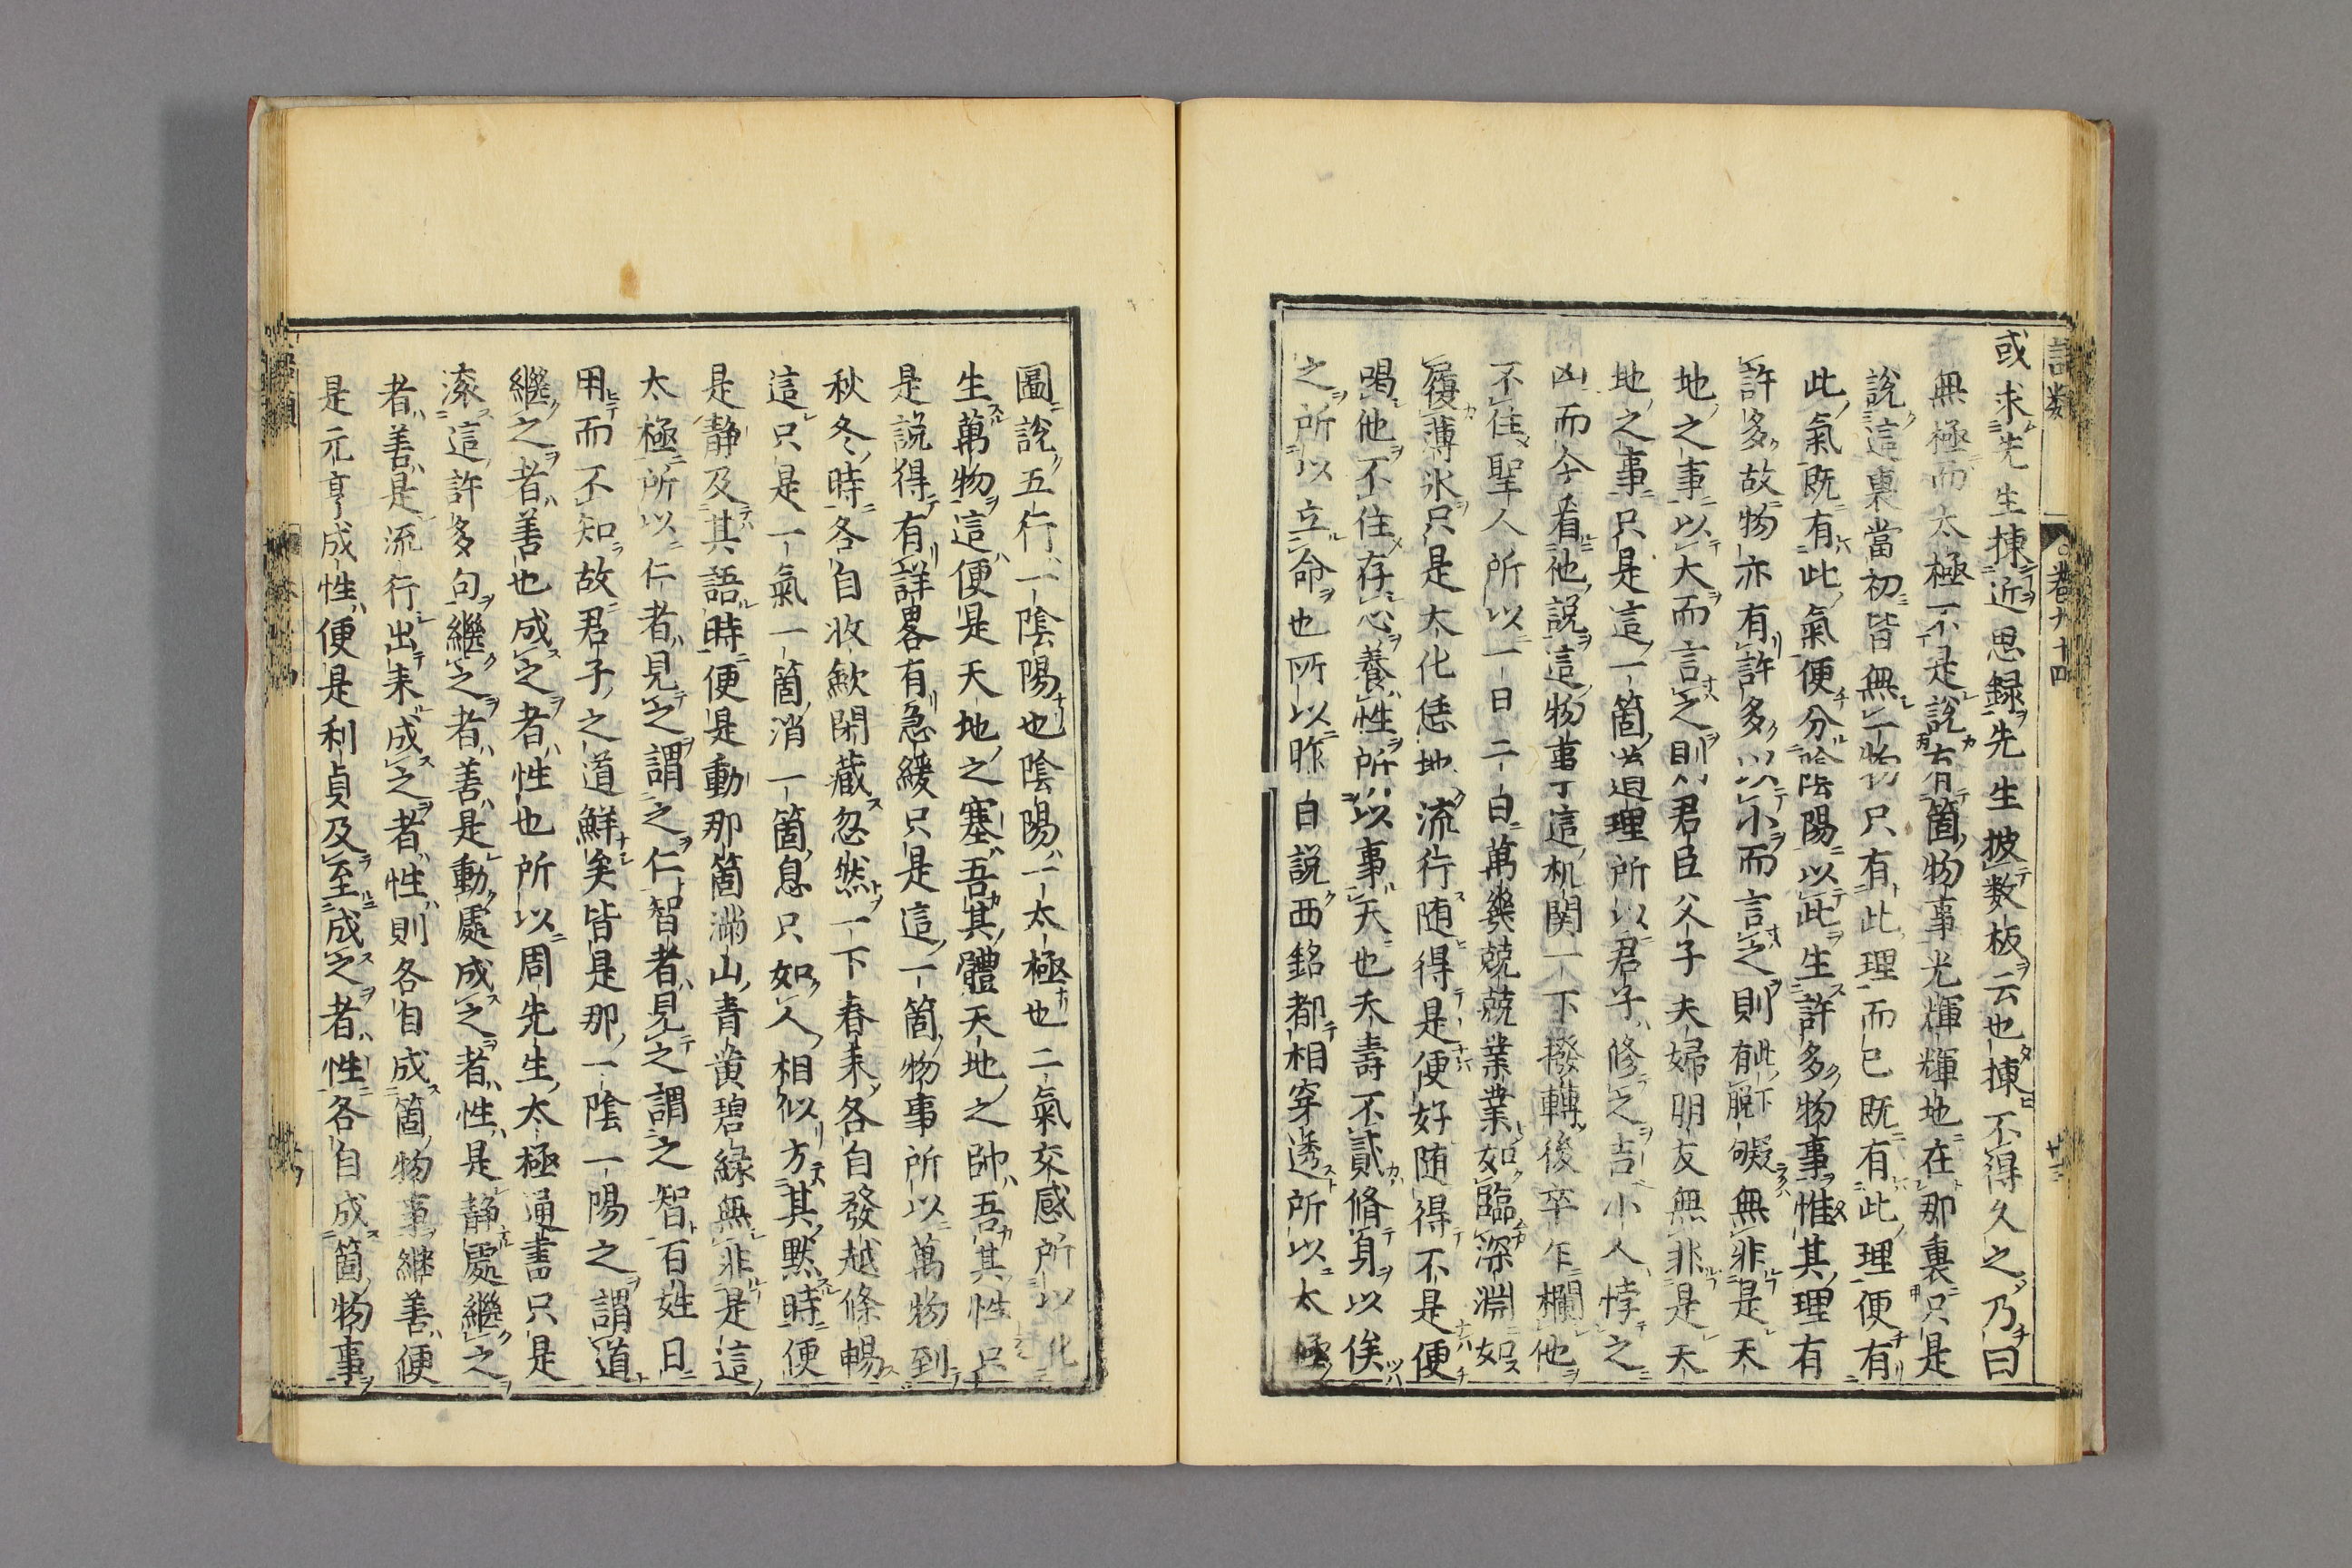 語類
巻九十四
廿三
或求先生揀近思録先生披数板云也揀不得久之乃曰
無極而太極不是説有箇物事光輝輝地在那裏只是
説這裏當初皆無一物只有此理而已既有此理便有
此氣既有此氣便分陰陽以此生許多物事惟其理有
許多故物亦有許多以小而言之則有此下脱礙無非是天
地之事以大而言之則君臣父子夫婦朋友無非是天
地之事只是這一箇道理所以君子修之吉小人悖之
凶而今看他説這物事了這机関一下撥轉後卒乍欄他
不住聖人所以一日二日萬幾兢兢業業如臨深淵如
履薄氷只是太化恁地流行随得是便好随得不是便
喝他不住存心養性所以事天也夭壽不貳脩身以俟
之所以立命也所以昨日説西銘都相穿透所以太極
圖説五行一陰陽也陰陽一太極也二氣交感所以化
生萬物這便是天地之塞吾其體天地之帥吾其性只
是説得有詳畧有急緩只是這一箇物事所以萬物到
秋冬時各自收歛閑藏忽然一下春来各自發越條暢
這只是一氣一箇消一箇息只如人相似方其黙時便
是静及其語時便是動那箇滿山青黄碧緑無非是這
太極所以仁者見之謂之仁智者見之謂之智百姓日
用而不知故君子之道鮮矣皆是那一陰一陽之謂道
繼之者善也成之者性也所以周先生太極通書只是
滚這許多句繼之者善是動處成之者性是静處繼之
者善是流行出来成之者性則各自成箇物事継善便
是元亨成性便是利貞及至成之者性各自成箇物事